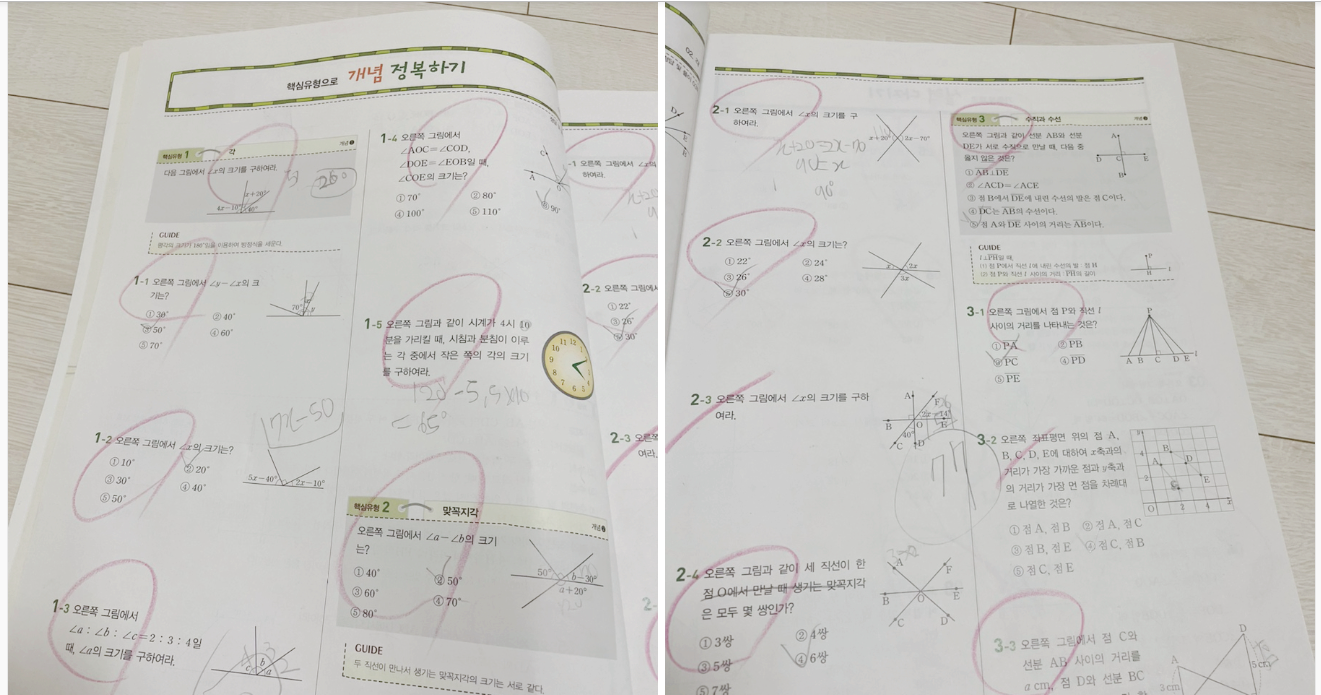 핵심유형으로 개념 정복하기
핵심유형 1 각 개념 1
다음 그림에서 ∠x의 크기를 구하여라.
x+20°
4x-10° 40°
26°
GUIDE
평각의 크기가 180°임을 이용하여 방정식을 세운다.
1-1 오른쪽 그림에서 ∠y-∠x의 크
기는?
① 30° ② 40°
③ 50° ④ 60°
⑤ 70°
70° x y
1-2 오른쪽 그림에서 ∠x의 크기는?
① 10° ② 20°
③ 30° ④ 40°
⑤ 50°
7x-50
5x-40° 2x-10°
1-3 오른쪽 그림에서
∠a : ∠b : ∠c=2 : 3 : 4일
때, ∠a의 크기를 구하여라.
c b a
1-4 오른쪽 그림에서
∠AOC=∠COD,
∠DOE=∠EOB일 때,
∠COE의 크기는?
① 70° ② 80°
③ 90°
④ 100° ⑤ 110°
C
A
1-5 오른쪽 그림과 같이 시계가 4시 10
분을 가리킬 때, 시침과 분침이 이루
는 각 중에서 작은 쪽의 각의 크기
를 구하여라.
11 12 1
10
9
8
7 6 5
120-5.5×10
=65°
핵심유형 2 맞꼭지각 개념 2
오른쪽 그림에서 ∠a-∠b의 크기
는?
① 40° ② 50°
③ 60° ④ 70°
⑤ 80°
50° b-30°
a+20°
GUIDE
두 직선이 만나서 생기는 맞꼭지각의 크기는 서로 같다.
-1 오른쪽 그림에서 ∠x의
하여라.
2-2 오른쪽 그림에서
① 22°
③ 26°
⑤ 30°
2-3 오른쪽
여라.
2-
2-1 오른쪽 그림에서 ∠x의 크기를 구
하여라.
x+20° 2x-70°
x+20=2x-70
90=x
90°
2-2 오른쪽 그림에서 ∠x의 크기는?
① 22° ② 24°
③ 26° ④ 28°
⑤ 30°
x 2x
3x
2-3 오른쪽 그림에서 ∠x의 크기를 구하
여라.
A F
2x-14°
B O E
40°
C D
77
2-4 오른쪽 그림과 같이 세 직선이 한
점 O에서 만날 때 생기는 맞꼭지각
은 모두 몇 쌍인가?
① 3쌍 ② 4쌍
③ 5쌍 ④ 6쌍
⑤ 7쌍
A F
B O E
C D
핵심유형 3 수직과 수선 개념 2
오른쪽 그림과 같이 선분 AB와 선분
DE가 서로 수직으로 만날 때, 다음 중
옳지 않은 것은?
① AB⊥DE
② ∠ACD=∠ACE
③ 점 B에서 DE에 내린 수선의 발은 점 C이다.
④ DC는 AB의 수선이다.
⑤ 점 A와 DE 사이의 거리는 AB이다.
A
D C E
B
GUIDE
l⊥PH일 때,
(1) 점 P에서 직선 l에 내린 수선의 발 : 점 H
(2) 점 P와 직선 l 사이의 거리 : PH의 길이
P
H l
3-1 오른쪽 그림에서 점 P와 직선 l
사이의 거리를 나타내는 것은?
① PA ② PB
③ PC ④ PD
⑤ PE
P
A B C D E l
3-2 오른쪽 좌표평면 위의 점 A,
B, C, D, E에 대하여 x축과의
거리가 가장 가까운 점과 y축과
의 거리가 가장 먼 점을 차례대
로 나열한 것은?
① 점 A, 점 B ② 점 A, 점 C
③ 점 B, 점 E ④ 점 C, 점 B
⑤ 점 C, 점 E
y
4 B
A D
2 C E
O 2 4 x
3-3 오른쪽 그림에서 점 C와
선분 AB 사이의 거리를
a cm, 점 D와 선분 BC
D
A
5 cm
3 cm